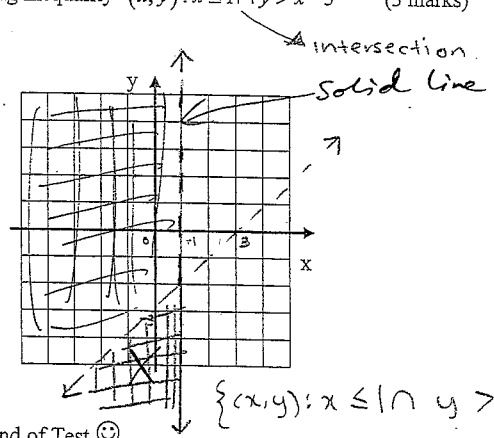 (x, y) : x ≤ 1 ∩ y > x - 3 (3 marks)
intersection
Solid line
y
0 1 3
x
{(x,y): x ≤ 1 ∩ y >
nd of Test ☺